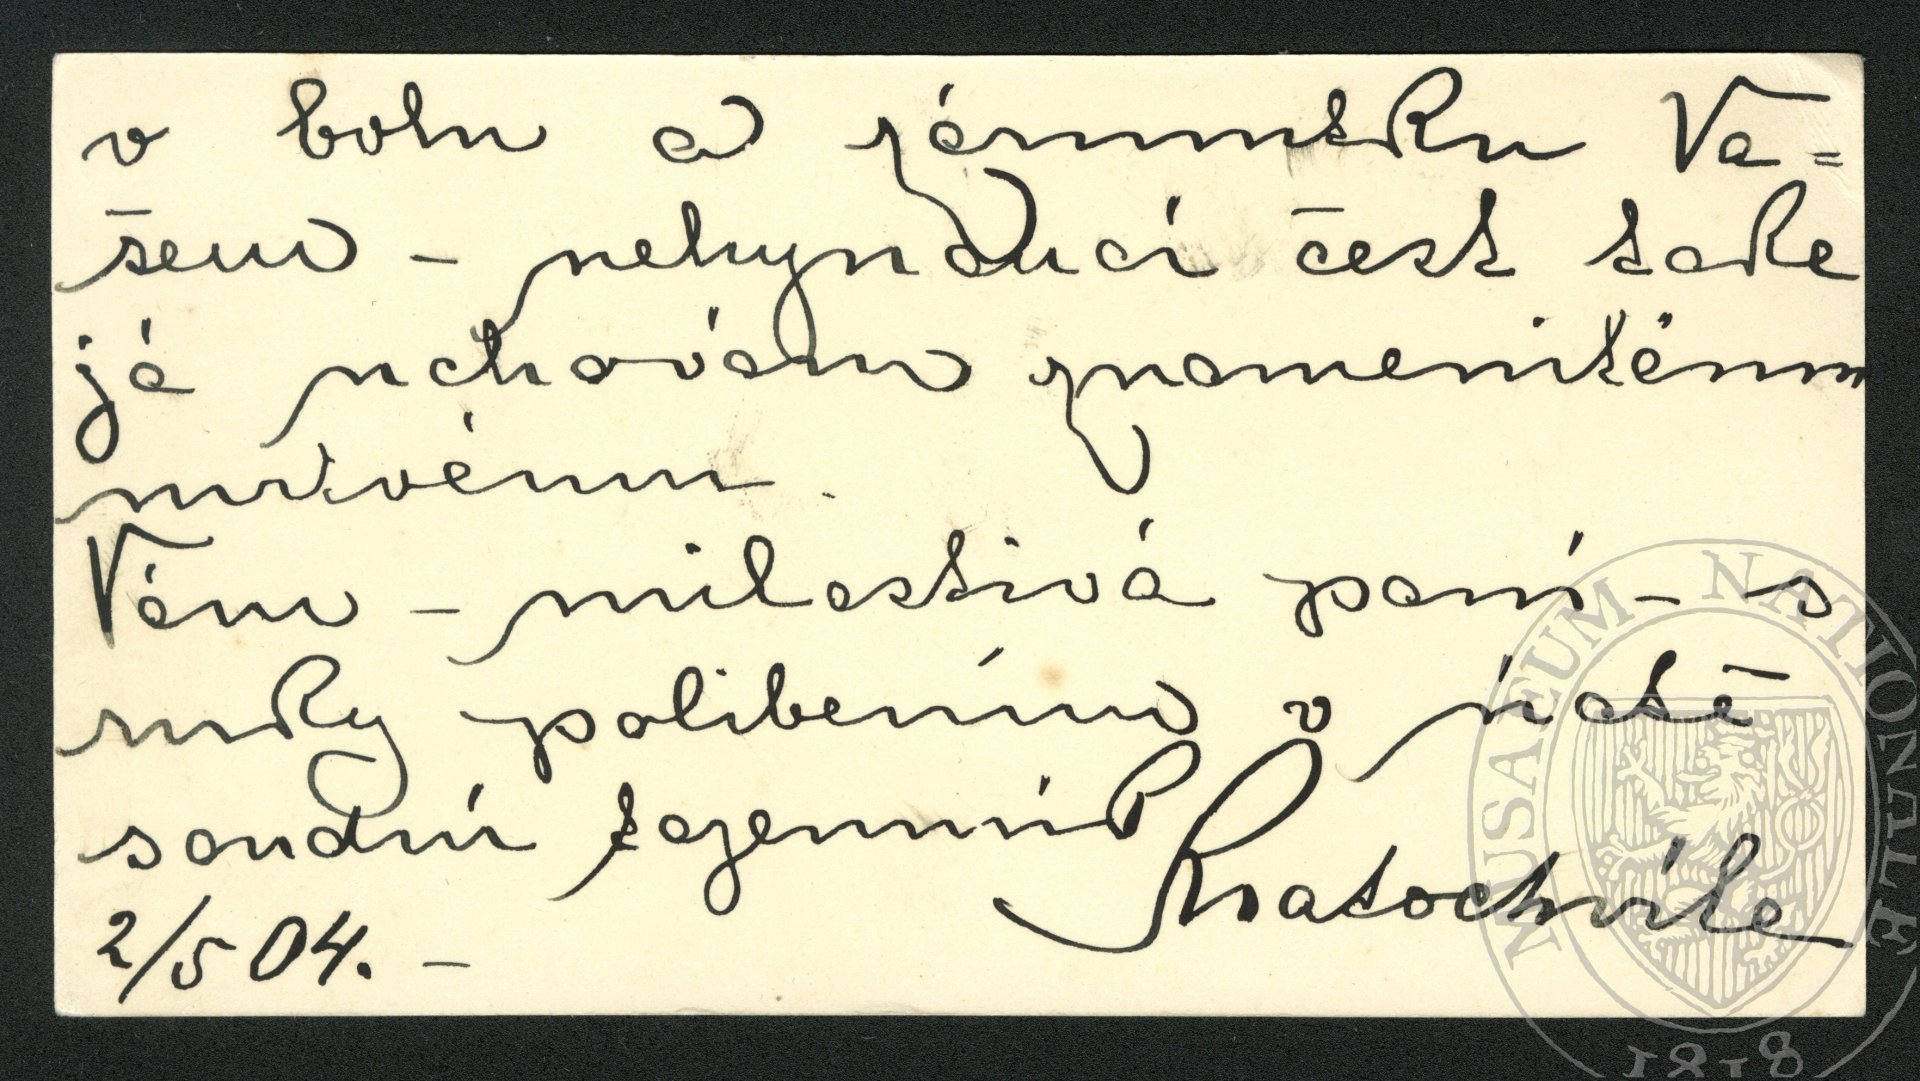 v bolu a zármutku Va=
šem – nehynoucí čest take
já uchovám znamenitému
mrtvému.
Vám – milostivá paní – s
ruky políbením v úctě
soudní tajemník Kratochvíle
2/5 04. –
MUSAEUM NATIONALE
1818